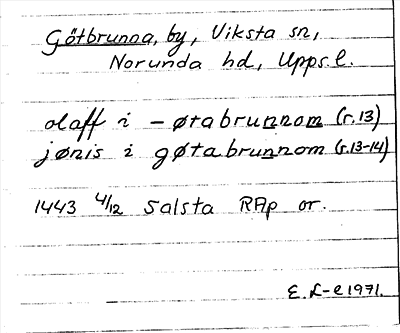 Götbrunna, by, Viksta sn,
Norunda hd, Upps.l.
olaff i - øtabrunnom (r.13)
jønis i gøtabrunnom (r.13-14)
1443 4/12 Salsta RAp or.
E. L-e 1971.